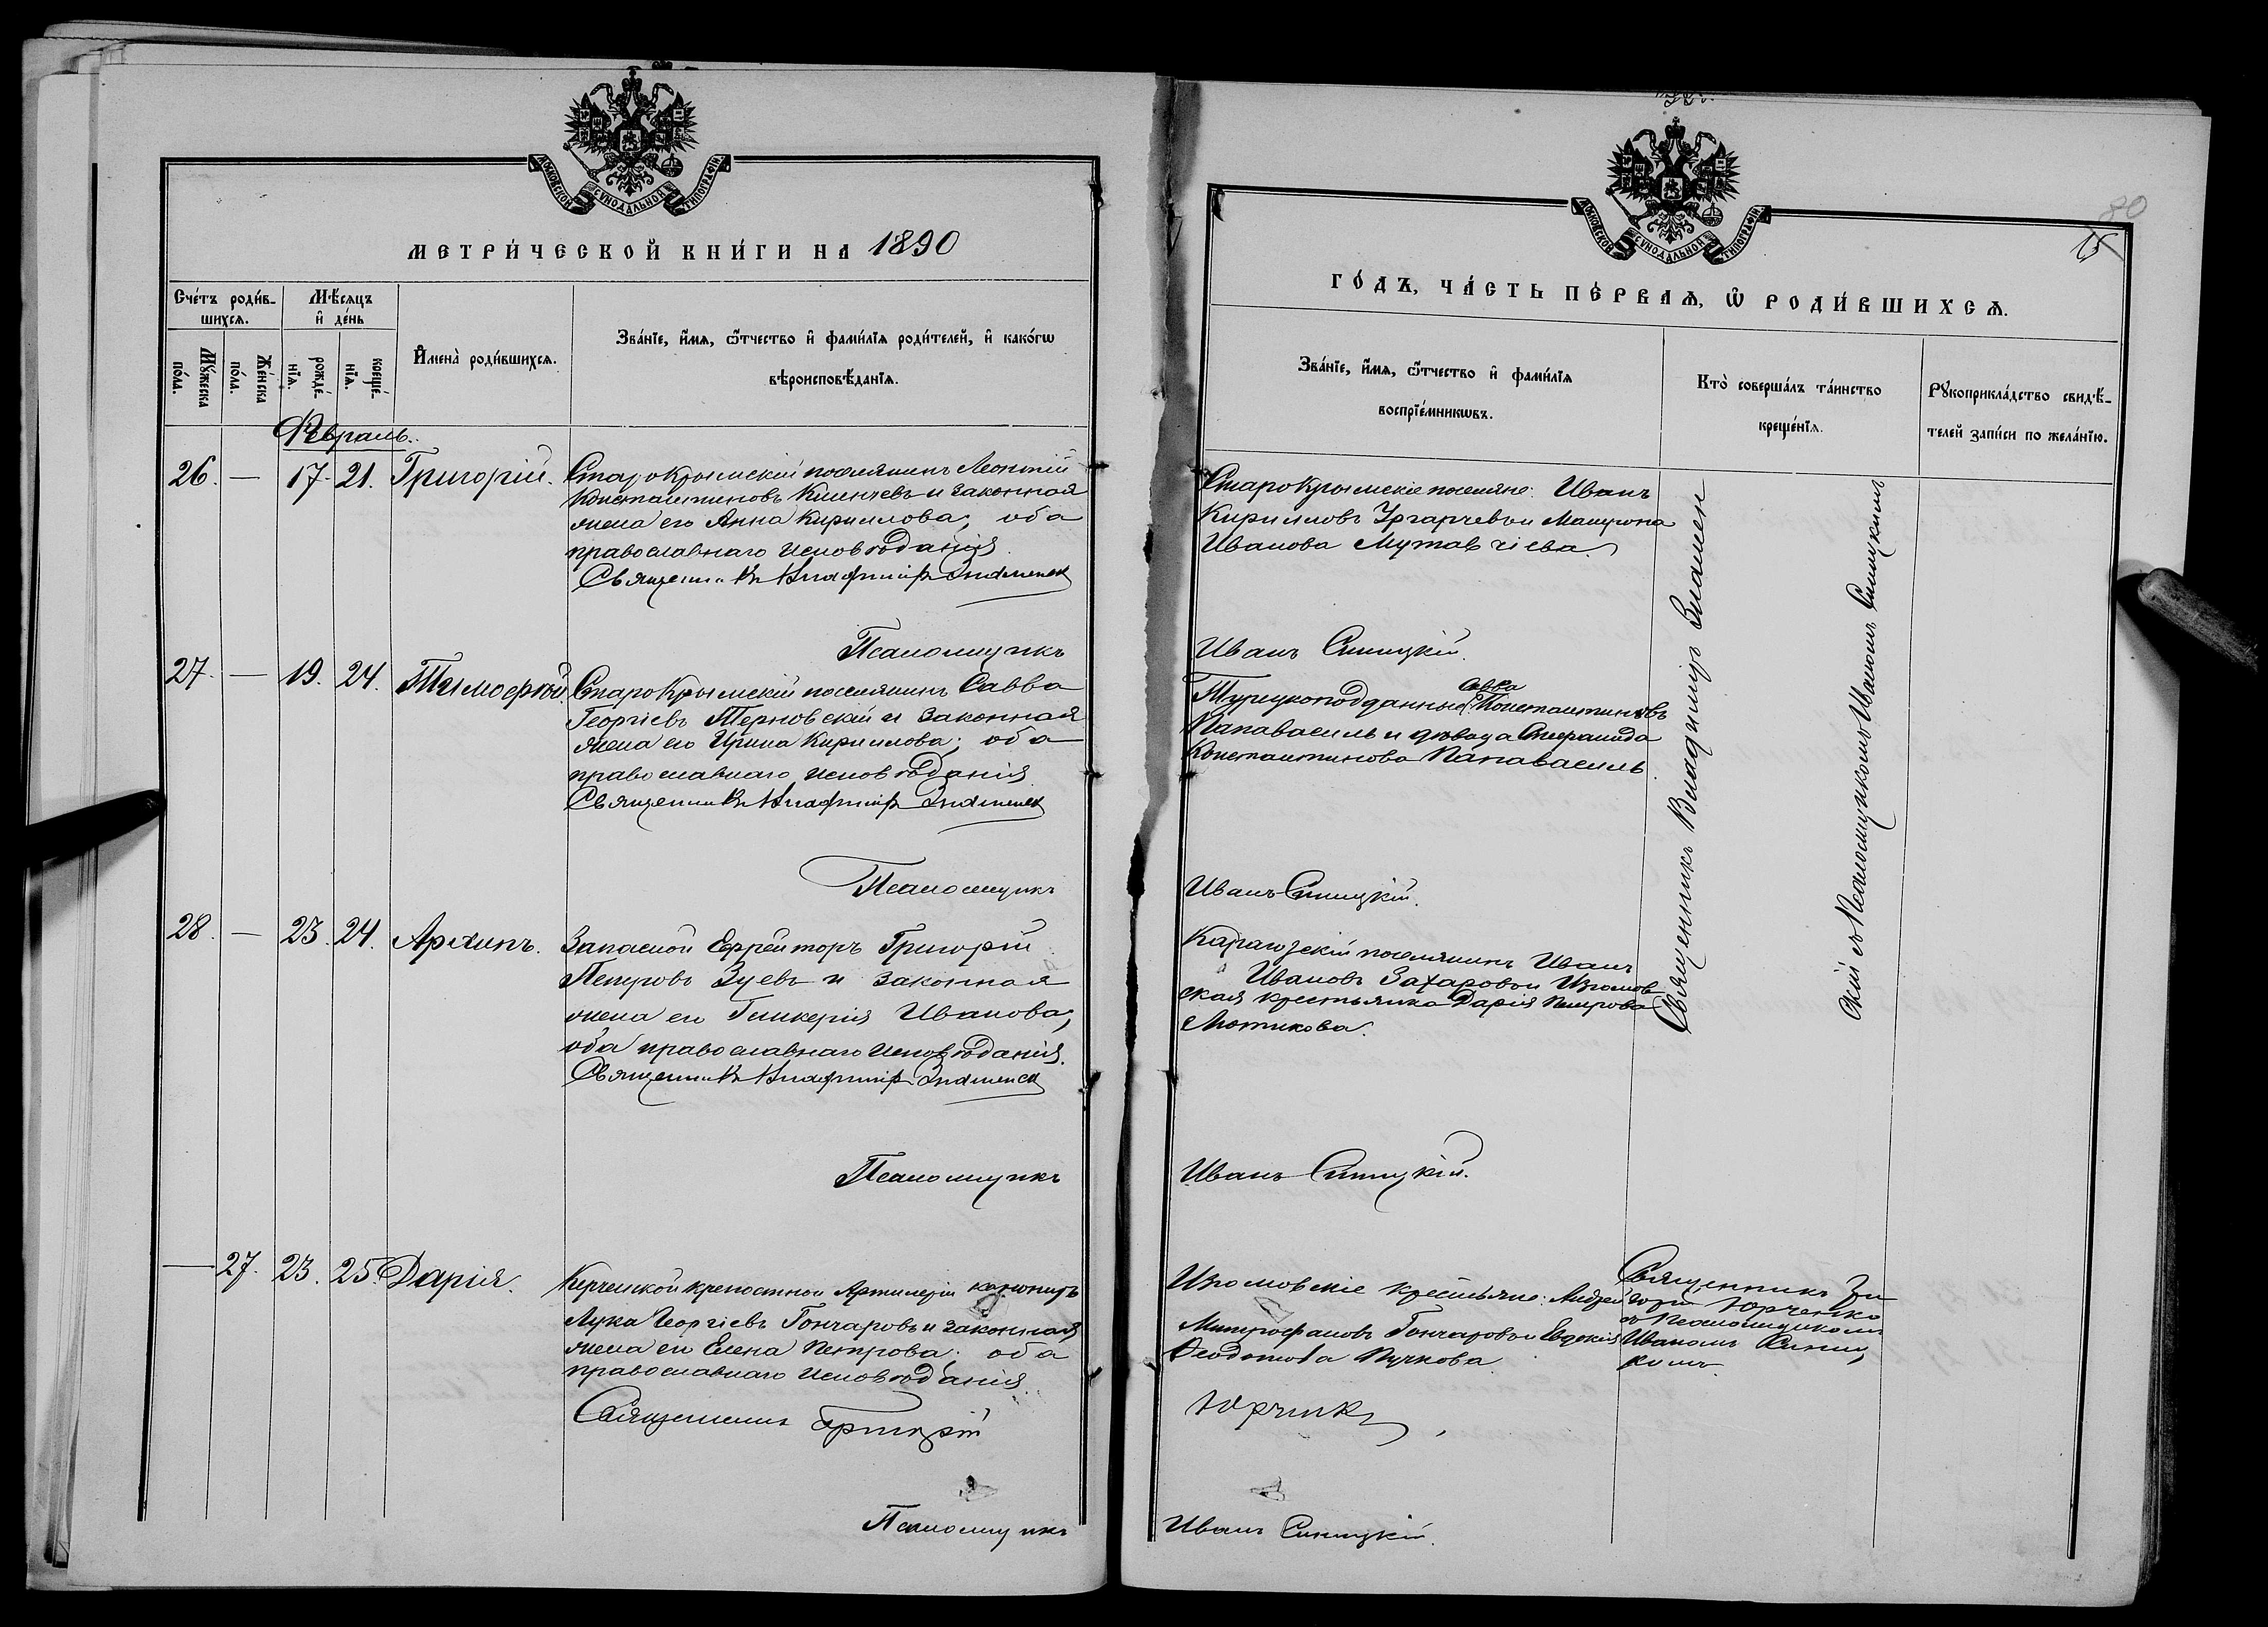 МОСКОВСКОЙ СѴНОДАЛЬНОЙ ТИПОГРАФІИ
МЕТРИ́ЧЕСКОЙ КНИ́ГИ НА 1890
Сче́тъ роди́в-
шихсѧ.
Мѣ́сѧцъ
и҆ де́нь
Мꙋ́жеска
по́ла.
Же́нска
по́ла.
рожде́-
нїѧ.
креще́-
нїѧ.
И҆мена̀ роди́вшихсѧ.
Зва́нїе, и҆́мѧ, ѻ҆́тчество и҆ фами́лїѧ роди́телей, и҆ како́гѡ
вѣроисповѣ́данїѧ.
Февраль.
26. — 17. 21. Григорій.
Старокрымскій поселянинъ Леонтій
Константиновъ и законная
жена его Анна Кириллова; оба
православнаго исповѣданія.
Священникъ Владиміръ Знаменск
Псаломщикъ
27. — 19. 24. Тимофей.
Старокрымскій поселянинъ Савва
Георгіевъ Терновскій и законная
жена его Ирина Кириллова; оба
православнаго исповѣданія
Священникъ Владиміръ Знаменск
Псаломщикъ
28. — 23. 24. Архипъ.
Запасной Ефрейторъ Григорій
Петровъ Зуевъ и законная
жена его Гликерія Иванова;
оба православнаго исповѣданія.
Священникъ Владиміръ Знаменск
Псаломщикъ
— 27. 23. 25. Дарія.
Керченской крепостной Артилеріи канониръ
Лука Георгіевъ Гончаровъ и законная
жена его Елена Петрова; оба
православнаго исповѣданія.
Священникъ Григорій
Псаломщикъ
МОСКОВСКОЙ СѴНОДАЛЬНОЙ ТИПОГРАФІИ
80
ГО́ДЪ, ЧА́СТЬ ПЕ́РВАѦ, Ѡ҆ РОДИ́ВШИХСѦ.
Зва́нїе, и҆́мѧ, ѻ҆́тчество и҆ фами́лїѧ
воспрїе́мникѡвъ.
Кто̀ соверша́лъ та́инство
креще́нїѧ.
Рꙋкоприкла́дство свидѣ́-
телей за́писи по жела́нїю.
Старокрымскіе поселяне: Иванъ
Кирилловъ и
Иванова Мутавчіева.
Иванъ Синицкій.
Савва
Турецкоподданные: Константиновъ
Папавасиль и дѣвица Стефанида
Константинова Папавасиль.
Иванъ Синицкій.
Карагозскій поселянинъ Иванъ
Ивановъ Захаровъ и Изюмов-
ская крестьянка Дарія Петрова
Лютикова.
Иванъ Синицкій.
Изюмовскіе крестьяне: Андрей
Митрофановъ Гончаровъ и Евдокія
Феодотова Пучкова.
Юрченко
Иванъ Синицкій.
Священникъ Владиміръ Знамен
скій съ Псаломщикомъ Иваномъ Синицкимъ
Священникъ Гри-
горій Юрченко
съ Псаломщикомъ
Иваномъ Синиц
кимъ